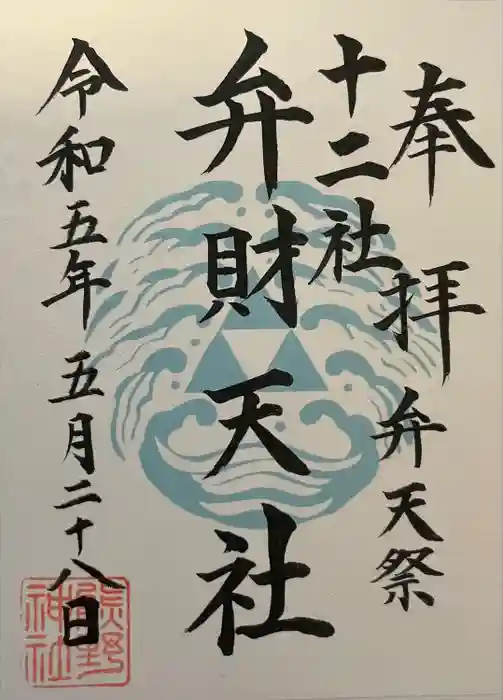 奉拝
弁天祭
十二社
弁財天社
令和五年 五月二十八日
熊野
神社